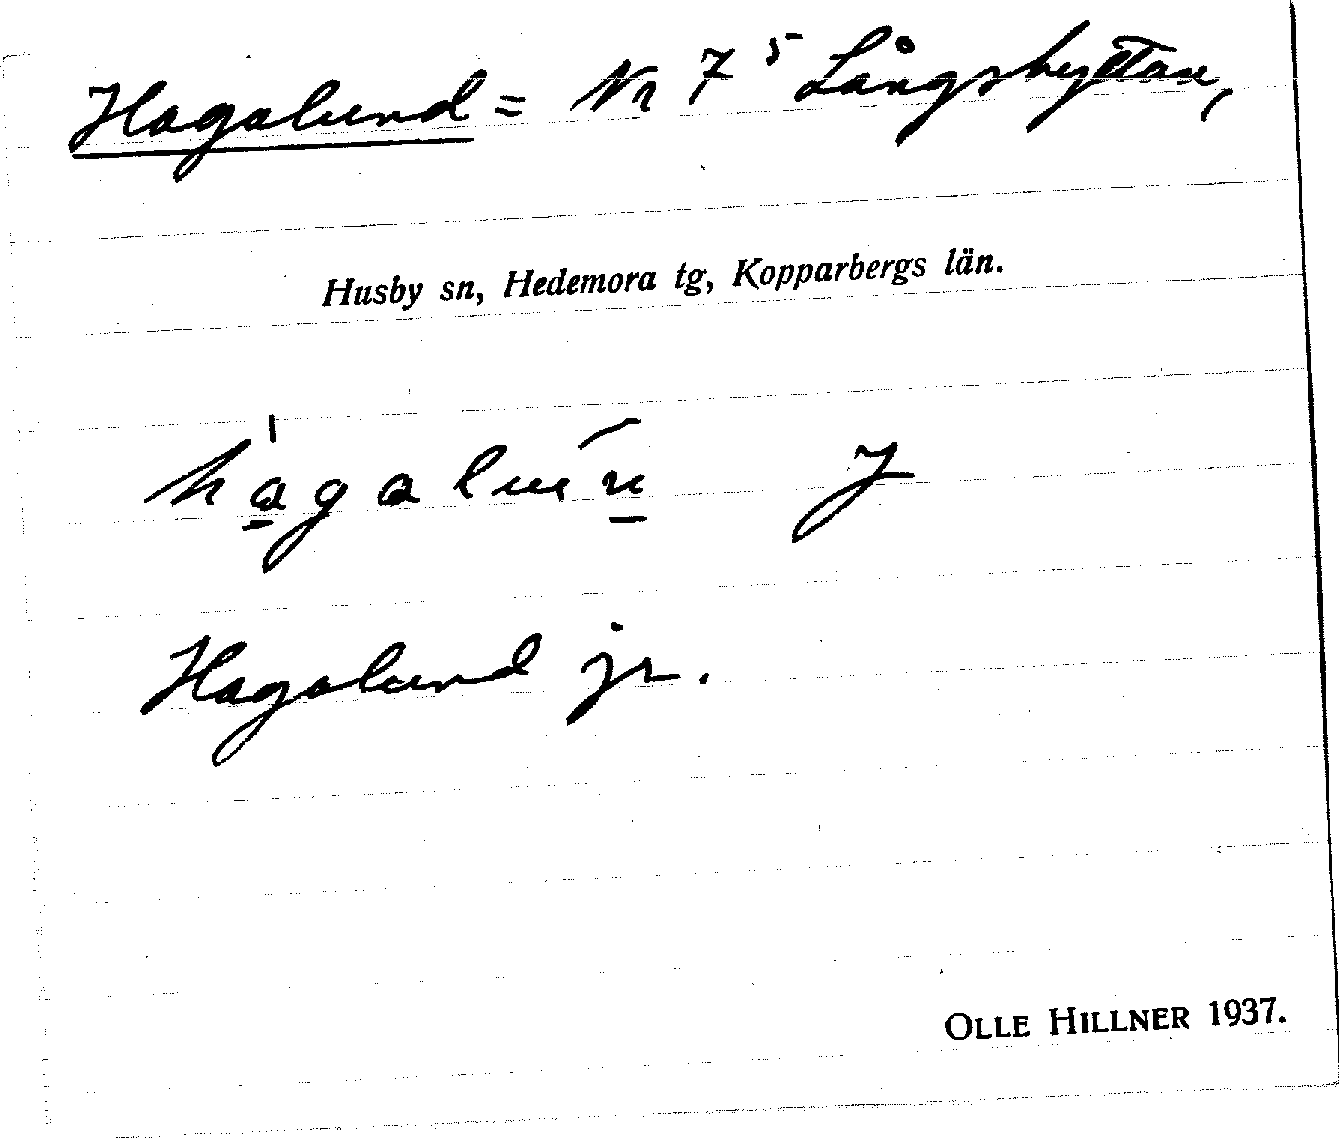 Hagalund = Nr 7⁵ Långshyttan,
Husby sn, Hedemora tg, Kopparbergs län.
hagalun J
Hagalund jr.
OLLE HILLNER 1937.